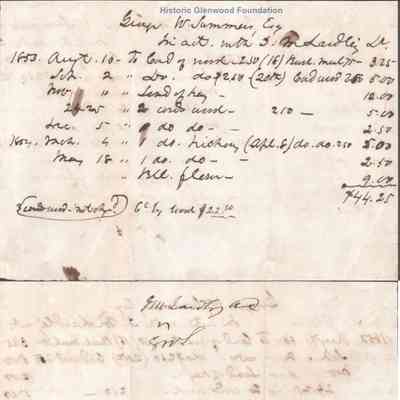 Historic Glenwood Foundation
George W. Summers Esq
In act. with J. M Laidley Dr.
1853. Augt. 10 - To Cord of wood - 250 /(16) Bush. 75 - 3.25
Sep. 2 " Do. do $250 (20th) Cord wood 250 5.00
Nov. " " Load of hay - 12.00
24-25 " 2 cords wood - 250 - 5.00
Dec. 5 " 1 do do - - 2.50
1854. Mch. 4 " 1 do. hickory (Apl. 6) do. do. 250 5.00
May 18 " 1 do. do - - 2.50
" Bbl. flour - 9.00
$44.25
Cr by wood $22.50
J M Laidley acct
v
GWS